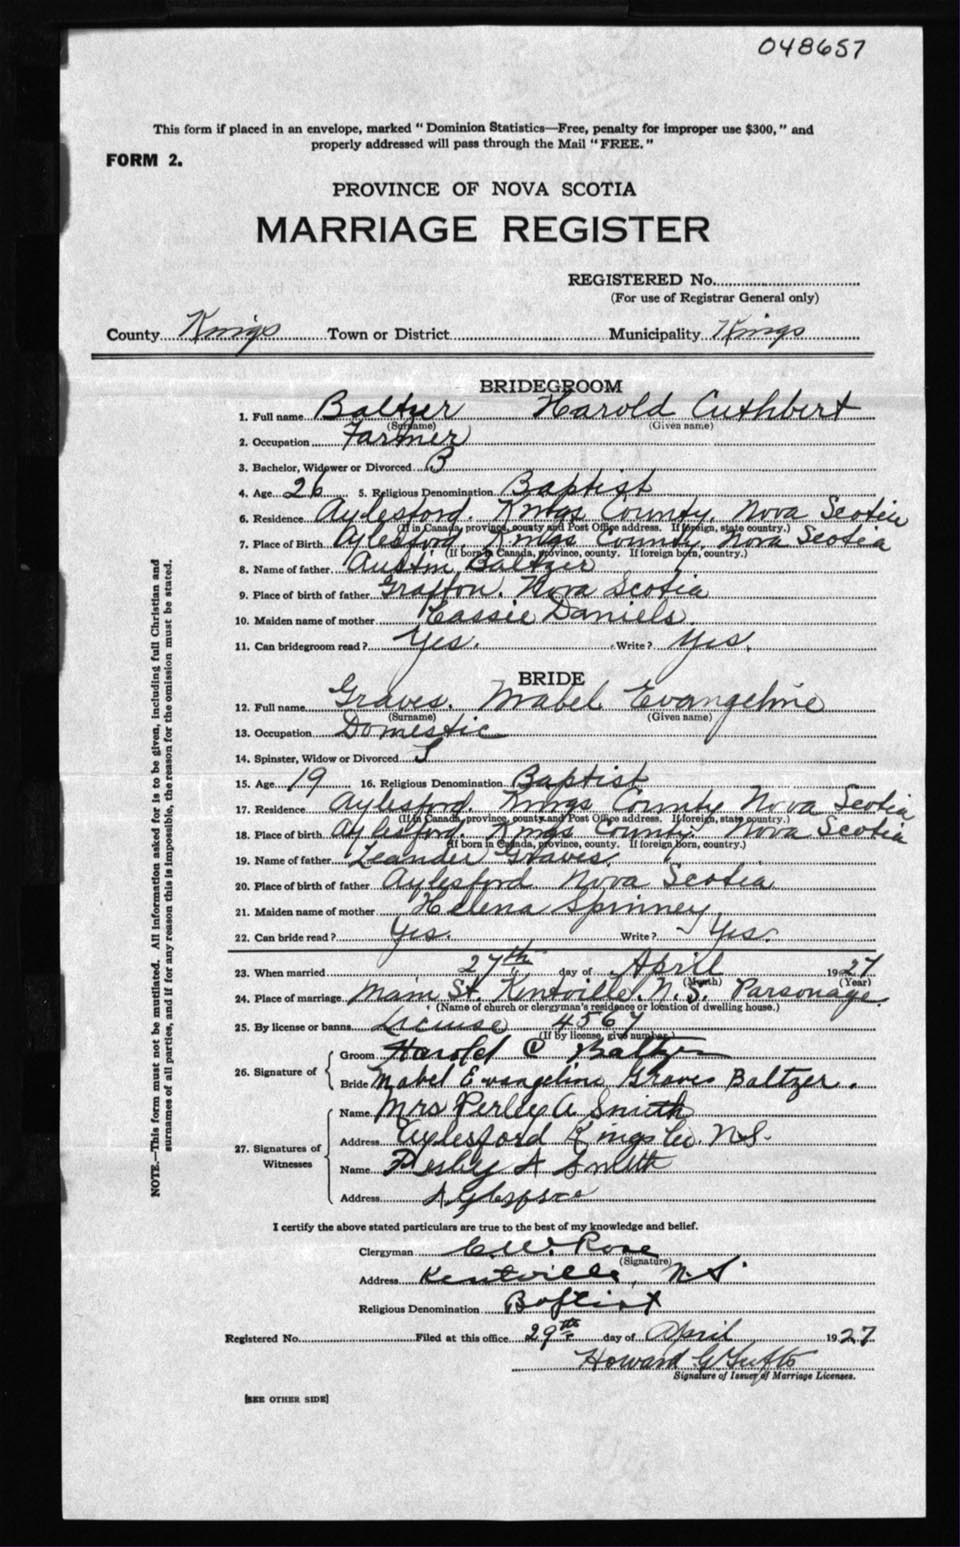 048657
This form if placed in an envelope, marked "Dominion Statistics—Free, penalty for improper use $300," and
properly addressed will pass through the Mail "FREE."
FORM 2.
PROVINCE OF NOVA SCOTIA
MARRIAGE REGISTER
REGISTERED No.
(For use of Registrar General only)
County Kings Town or District Municipality Kings
BRIDEGROOM
1. Full name Baltzer Harold Cuthbert
(Surname) (Given name)
2. Occupation Farmer
3. Bachelor, Widower or Divorced B
4. Age 26 5. Religious Denomination Baptist
6. Residence Aylesford, Kings County, Nova Scotia
(If in Canada, province, county and Post Office address. If foreign, state country.)
7. Place of Birth Aylesford, Kings County, Nova Scotia
(If born in Canada, province, county. If foreign born, country.)
8. Name of father Austin Baltzer
9. Place of birth of father Grafton, Nova Scotia
10. Maiden name of mother Cassie Daniels
11. Can bridegroom read? Yes. Write? Yes.
BRIDE
12. Full name Graves. Mabel Evangeline
(Surname) (Given name)
13. Occupation Domestic
14. Spinster, Widow or Divorced S
15. Age 19 16. Religious Denomination Baptist
17. Residence Aylesford, Kings County Nova Scotia
(If in Canada, province, county and Post Office address. If foreign, state country.)
18. Place of birth Aylesford, Kings County Nova Scotia
(If born in Canada, province, county. If foreign born, country.)
19. Name of father Leander Graves.
20. Place of birth of father Aylesford Nova Scotia
21. Maiden name of mother Helena Spinney
22. Can bride read? Yes. Write? Yes.
23. When married 27th day of April 1927
(Month) (Year)
24. Place of marriage Main St. Kentville. N.S. Parsonage
(Name of church or clergyman's residence or location of dwelling house.)
25. By license or banns License 4567
(If by license, give number.)
26. Signature of
Groom Harold C Baltzer
Bride Mabel Evangeline Graves Baltzer.
27. Signatures of Witnesses
Name Mrs Perley A Smith
Address Aylesford Kings Co N.S.
Name Perley A Smith
Address Aylesford
I certify the above stated particulars are true to the best of my knowledge and belief.
Clergyman C.W. Rose
(Signature)
Address Kentville, N.S.
Religious Denomination Baptist
Registered No. Filed at this office 29th day of April 1927
Howard G
Signature of Issuer of Marriage Licenses.
[SEE OTHER SIDE]
NOTE.—This form must not be mutilated. All information asked for is to be given, including full Christian and
surnames of all parties, and if for any reason this is impossible, the reason for the omission must be stated.